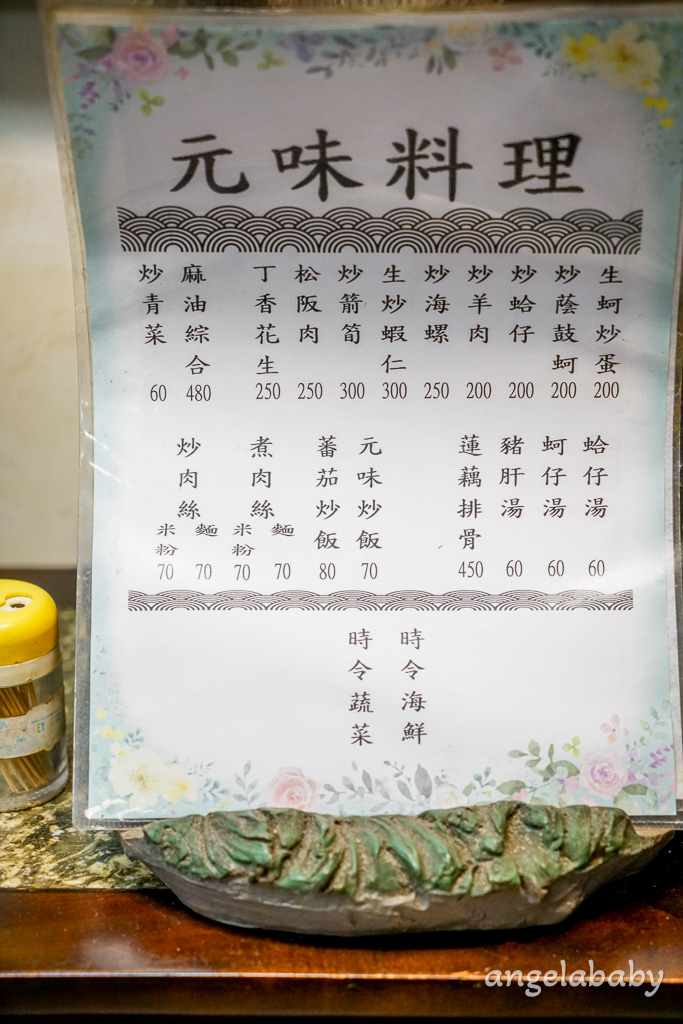 元味料理
生蚵炒蛋 200
炒蔭鼓蚵 200
炒蛤仔 200
炒羊肉 200
炒海螺 250
生炒蝦仁 300
炒箭筍 300
松阪肉 250
丁香花生 250
麻油綜合 480
炒青菜 60
蛤仔湯 60
蚵仔湯 60
豬肝湯 60
蓮藕排骨 450
元味炒飯 70
蕃茄炒飯 80
煮肉絲
麵 70
米粉 70
炒肉絲
麵 70
米粉 70
時令海鮮
時令蔬菜
angelababy